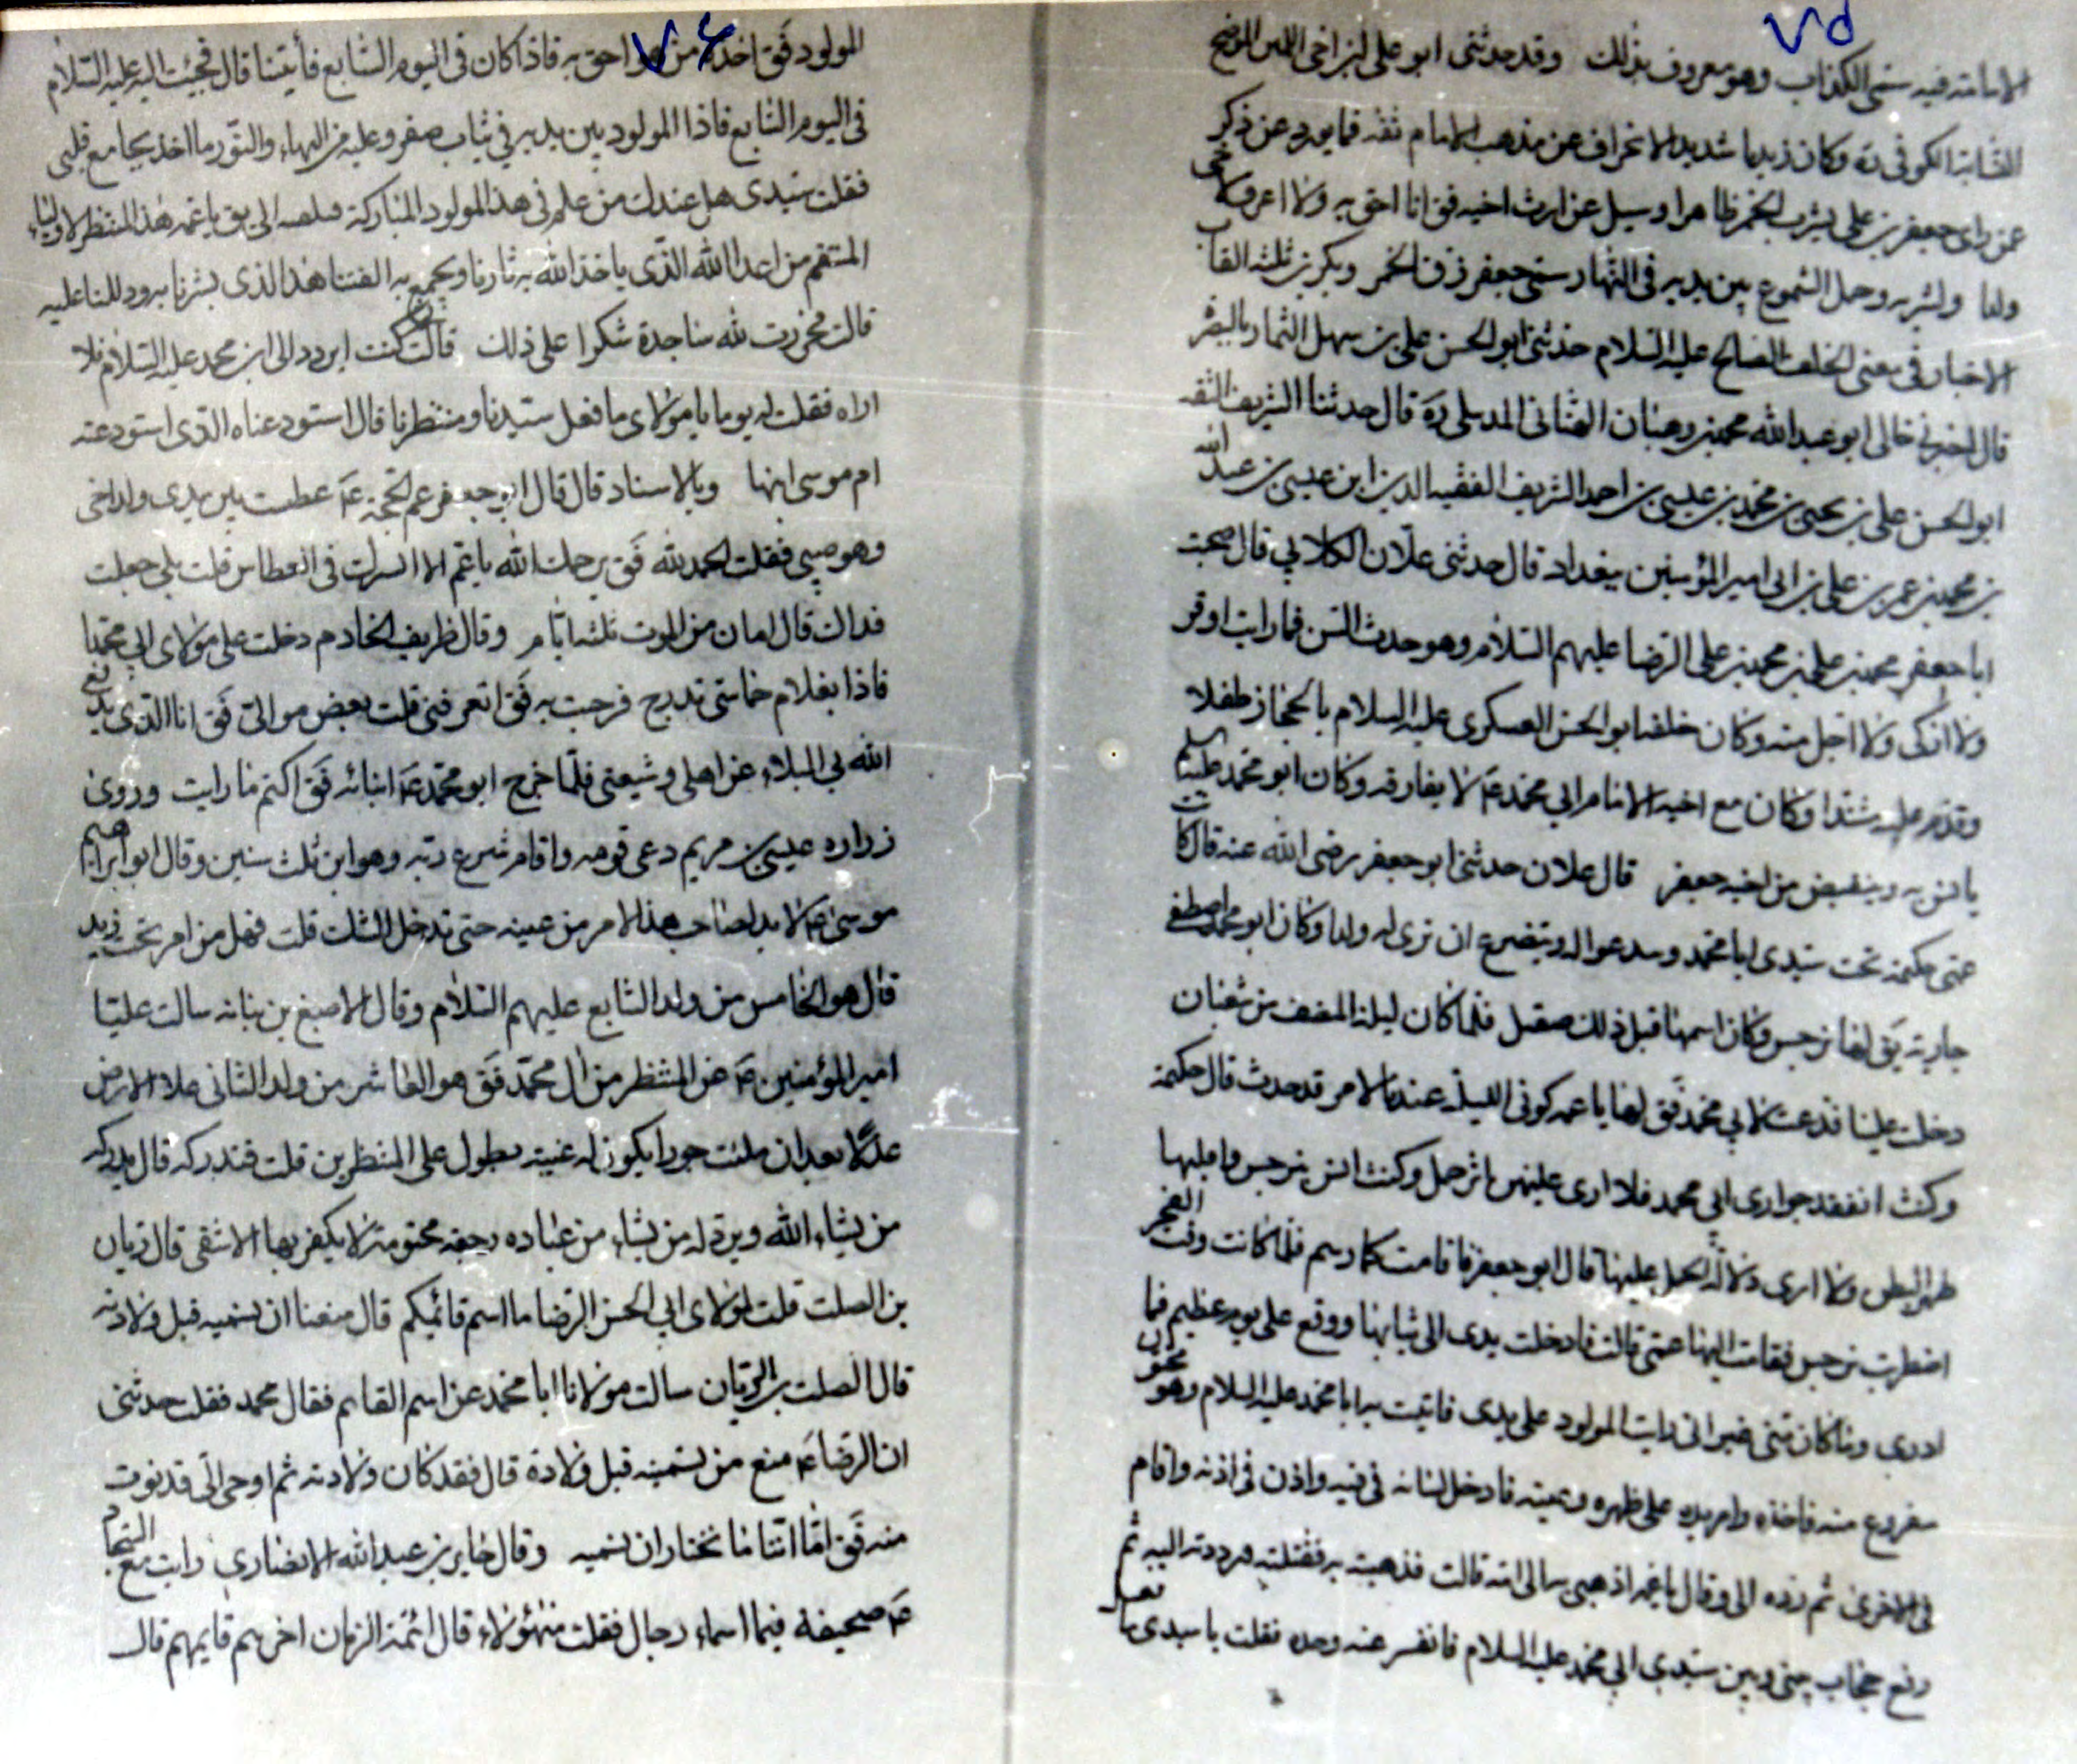 ٧٥
الامامته فيه سمى الكذاب وهو معروف بذلك وقد حدثنى ابو على ابن اخى اللبن الموضح
النسابة الكوفى ره وكان زيديا شديد الانحراف عن مذهب الامام ثقه فما يورده عن ذكر
عن راى جعفر بن على يشرب الخمر ظاهرا وسيل عن ارث اخيه فق انا احق به ولا اعرف لاخى
ولدا وحمل الشموع بين يديه فى النهار سمى جعفر زق الخمر
الاخبار فى معنى الخلف الصالح عليه السلام حدثنى ابو الحسن على بن سهل التمار بالبصرة
قال اخبرنى خالى ابو عبد الله محمد بن وهبان ره قال حدثنا الشريف الثقه
ابو الحسن على بن يحيى بن محمد بن عيسى بن احمد الشريف الفقيه الدين ابن عيسى بن عبد الله
بن محمد بن عمر بن على بن ابى امير المؤمنين ببغداد قال حدثنى علان الكلابى قال صحبت
ابا جعفر محمد بن على بن محمد بن على الرضا عليهم السلام وهو حدث السن فما رايت اوقر
ولا ازكى ولا اجل منه وكان خلفه ابو الحسن العسكرى عليه السلام بالحجاز طفلا
وقدم عليه مشتدا وكان مع اخيه الامام ابى محمد عم لا يفارقه وكان ابو محمد عليه السلم
يانس به وينقبض من اخيه جعفر قال علان حدثنى ابو جعفر رضى الله عنه قال كانت
عمتى حكيمة تحب سيدى ابا محمد وتدعو اله وتتضرع ان ترى له ولدا وكان ابو محمد اصطفى
جارية يق لها نرجس وكان اسمها قبل ذلك صقيل فلما كان ليلة النصف من شعبان
دخلت علينا فدعت لابى محمد فق لها يا عمه كونى الليلة عندنا لامر قد حدث قال حكيمة
وكنت اتفقد جوارى ابى محمد فلا ارى عليهن اثر حمل وكنت انس بنرجس واقلبها
ظهر البطن ولا ارى دلالة الحمل عليها قال ابو جعفر فاقامت كما رسم فلما كانت وقت الفجر
اضطربت نرجس فقامت اليها عمتى قالت فادخلت يدى الى ثيابها ووقع على نوم عظيم فما
ادرى وما كان منى غير انى رايت المولود على يدى فاتيت به ابا محمد عليه السلام وهو مختون
مفروغ منه فاخذه وامر يده على ظهره وعينه فادخل لسانه فى فيه واذن فى اذنه واقام
فى الاخرى ثم رده الى وقال يا عمه اذهبى به الى امه قالت فذهبت به فقبلته ورددته اليه ثم
رفع حجاب بينى وبين سيدى ابى محمد عليه السلام فانفسر عنه وحده فقلت يا سيدى ما فعل
٧٤
المولود فق اخذه من هو احق به فاذا كان فى اليوم السابع فأتينا قال فجئت اليه عليه السلام
فى اليوم السابع فاذا المولود بين يديه فى ثياب صفر وعليه من البهاء والنور ما اخذ بمجامع قلبى
فقلت سيدى هل عندك من علم فى هذا المولود المباركة فتلقيه الى يق يا عمه هذا المنتظر لاولياء
المنتقم من اعدا الله الذى ياخذ الله به ثارنا ويجمع به الفتنا هذا الذى بشرنا به ودللنا عليه
قالت فخررت لله ساجدة شكرا على ذلك قالت كنت اتردد الى ابى محمد عليه السلام فلا
اراه فقلت له يوما يا مولاى ما فعل سيدنا ومنتظرنا قال استودعناه الذى استودعته
ام موسى ابنها وبالاسناد قال قال ابو جعفر عم الحجة عم عطست بين يدى ولد اخى
وهو صبى فقلت الحمد لله فق يرحمك الله يا عم الا ابشرك فى العطاس قلت بلى جعلت
فداك قال امان من الموت ثلثة ايام وقال ظريف الخادم دخلت على مولاى ابى محمد
فاذا بغلام خماسى تدرج فرحبت به فق اتعرفنى قلت بعض موالى فق انا الذى يدفع
الله بى البلاء عن اهلى وشيعتى فلما خرج ابو محمد عم انبأته فق اكتم ما رايت وروى
زراره عيسى بن مريم دعى قومه واقام شرع ربه وهو ابن ثلث سنين وقال ابو ابراهيم
موسى عم لا بد لصاحب هذا الامر من عيبه حتى تدخل الشك قلت فهل من امر نحب نريد
قال هو الخامس من ولد السابع عليهم السلام وقال الاصبغ بن نباته سالت عليا
امير المؤمنين عم عن المنتظر من آل محمد فق هو العاشر من ولد الثانى يملا الارض
عدلا بعد ان ملئت جورا يكون له غيبه يطول على المنتظرين قلت فندركه قال يدركه
من يشاء الله ويرد له من يشاء من عباده رجعه محتومة لا يكفر بها الا شقى قال ريان
بن الصلت قلت لمولاى ابى الحسن الرضا ما اسم قائمكم قال منعنا ان نسميه قبل ولادته
قال الصلت بن الريان سالت مولانا ابا محمد عن اسم القايم فقال محمد فقلت حدثنى
ان الرضا عم منع من تسميته قبل ولادة قال فقد كان ولادته ثم اوحى الى قد نوت
منه فق اما اننا ما نختار ان نسميه وقال جابر بن عبد الله الانصارى رايت مع السجاد
عم صحيفة فيها اسماء رجال فقلت من هؤلاء قال ائمة الزمان اخرهم قايمهم قال